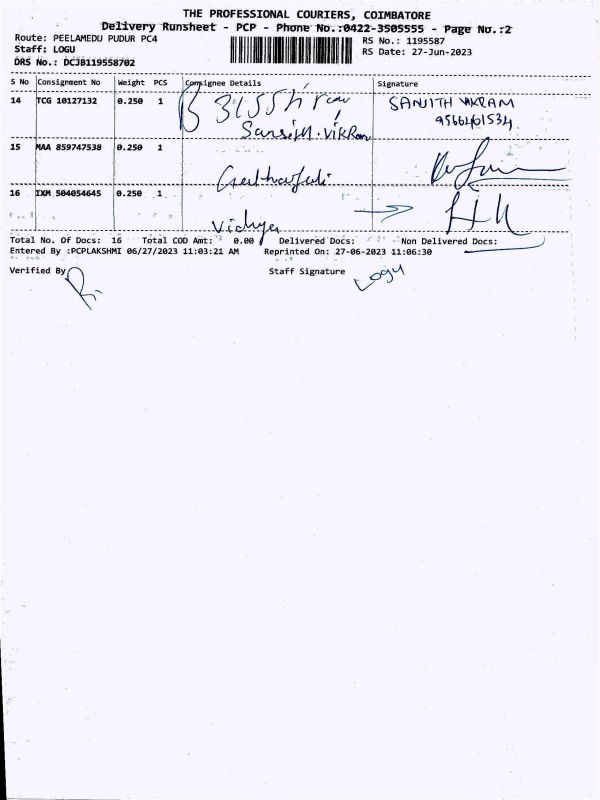 THE PROFESSIONAL COURIERS, COIMBATORE
Delivery Runsheet - PCP - Phone No.:0422-3505555 - Page No.:2
Route: PEELAMEDU PUDUR PC4
RS No.: 1195587
Staff: LOGU
RS Date: 27-Jun-2023
DRS No.: DCJB119558702
S No Consignment No Weight PCS Consignee Details Signature
14 TCG 10127132 0.250 1 SANJITH VIKRAM
9566401534
Sanjith.Vikram
15 MAA 859747538 0.250 1
16 IXM 504054645 0.250 1
Vidhya
Total No. Of Docs: 16 Total COD Amt: 0.00 Delivered Docs: Non Delivered Docs:
Entered By :PCPLAKSHMI 06/27/2023 11:03:21 AM Reprinted On: 27-06-2023 11:06:30
Verified By Staff Signature Logu